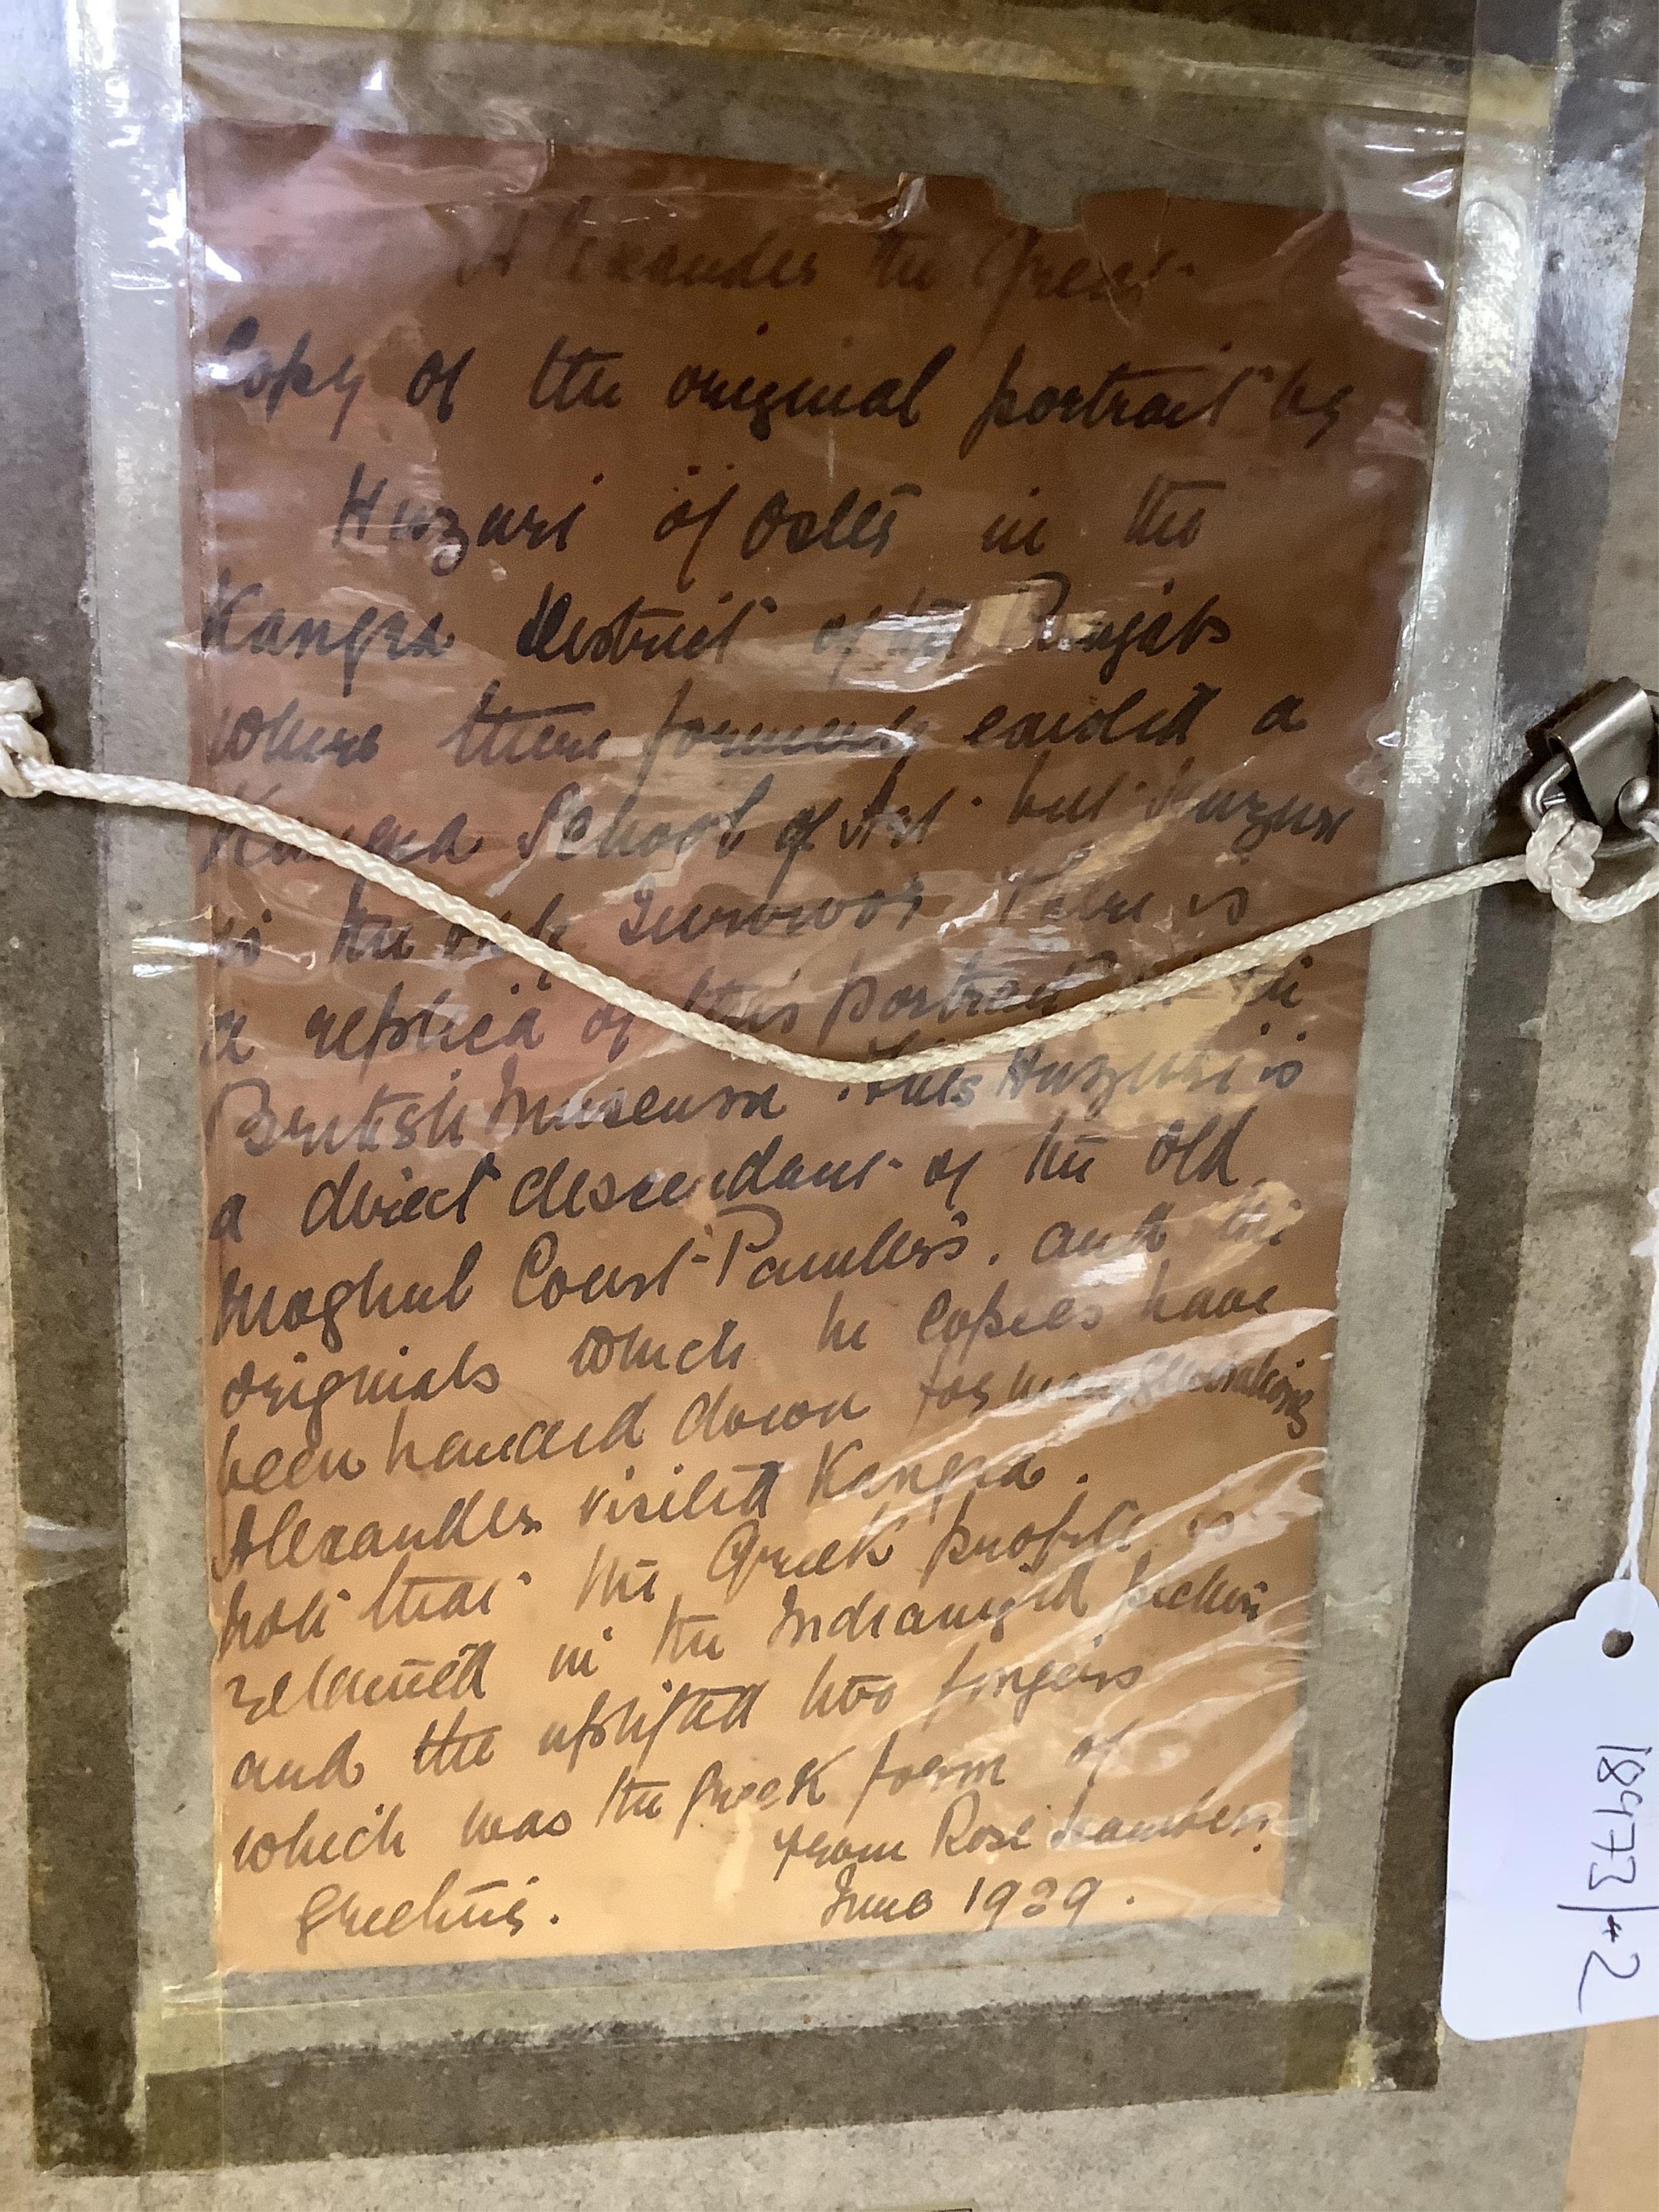 Alexander the Great
Copy of the original portrait by
Huzuri of in the
Kangra District of the Punjab
where there formerly existed a
Kangra School of Art but Huzuri
is the only Survivor. There is
a replica of this portrait in the
British Museum. This Huzuri is
a direct descendant of the old
Moghul Court Painters. and the
originals which he copies have
been handed down for many generations
Alexander visited Kangra.
Note that the Greek profile is
retained in the Indianized picture
and the uplifted two fingers
which was the Greek form of
Greeting.
from Rose
June 1939.
18473/#2